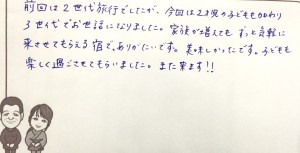 前回は2世代旅行でしたが、今回は2才児の子どもも加わり
3世代でお世話になりました。家族が増えても ずっと気軽に
来させてもらえる宿で、ありがたいです。美味しかったです。子どもも
楽しく過ごさせてもらいました。また来ます!!